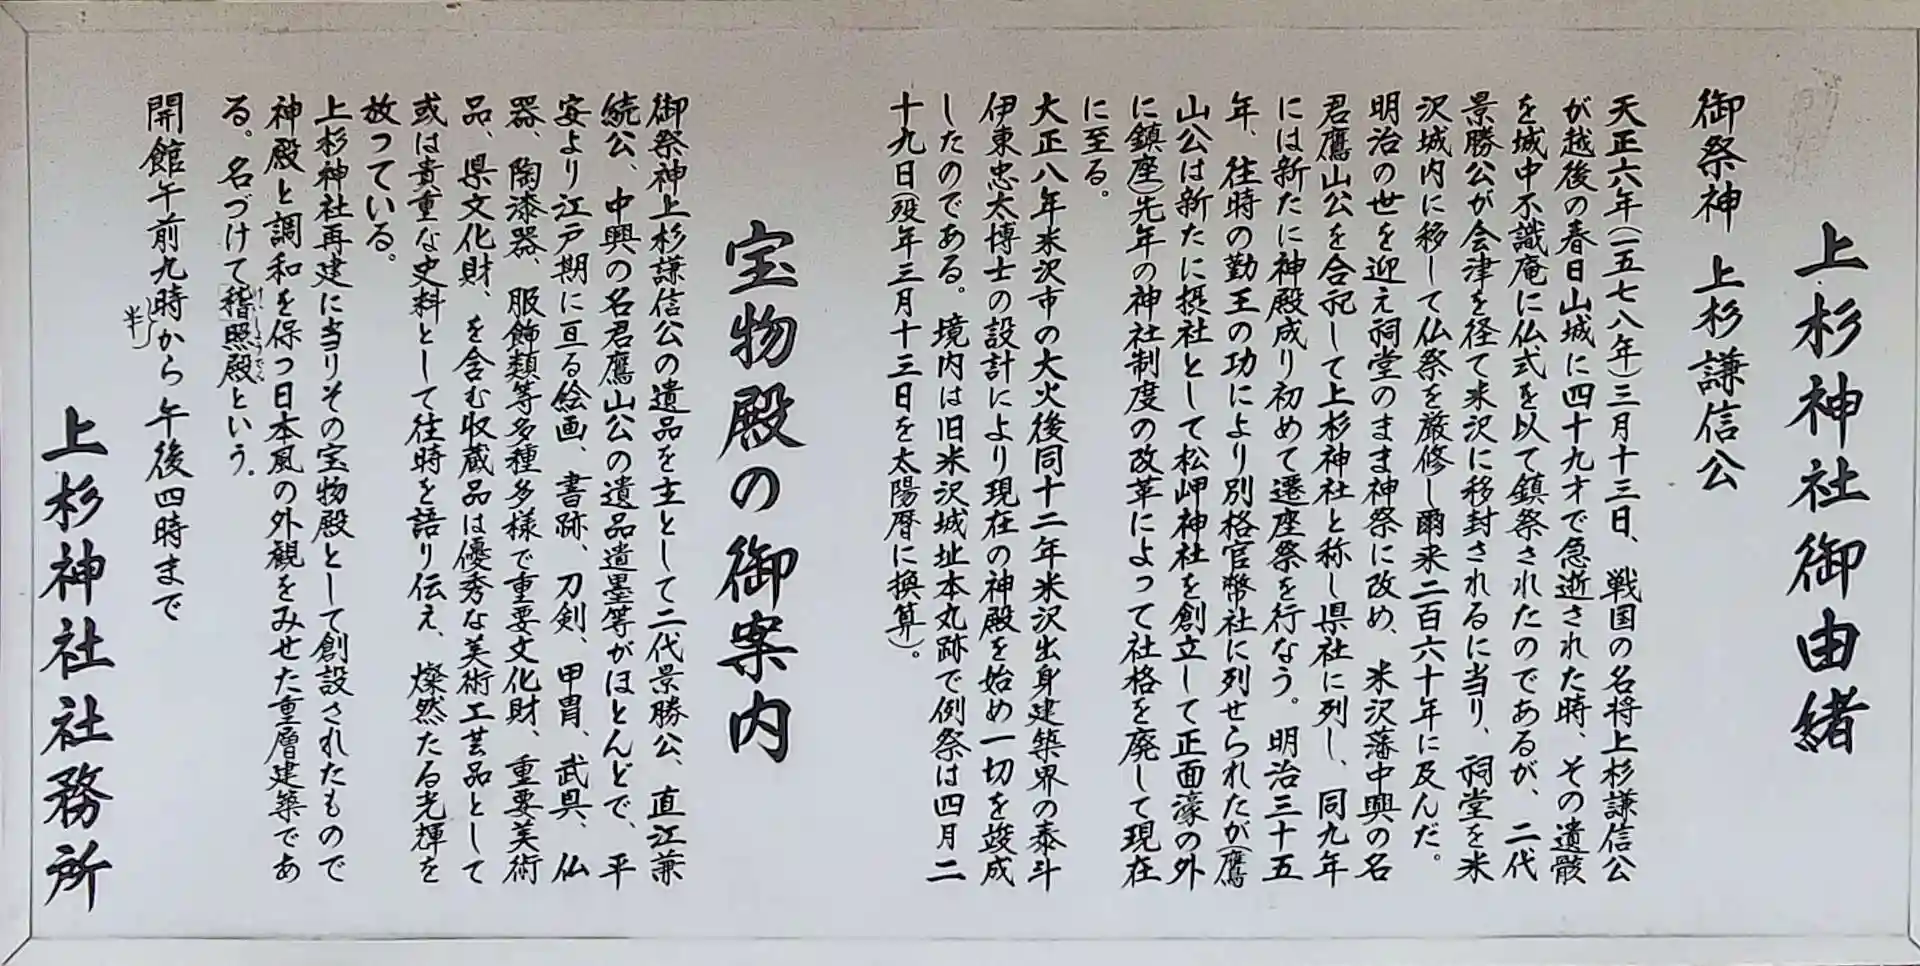 上杉神社御由緒
御祭神 上杉謙信公
天正六年(一五七八年)三月十三日、戦国の名将上杉謙信公
が越後の春日山城に四十九才で急逝された時、その遺骸
を城中不識庵に仏式を以て鎮祭されたのであるが、二代
景勝公が会津を径て米沢に移封されるに当り、祠堂を米
沢城内に移して仏祭を厳修し爾来二百六十年に及んだ。
明治の世を迎え祠堂のまま神祭に改め、米沢藩中興の名
君鷹山公を合祀して上杉神社と称し県社に列し、同九年
には新たに神殿成り初めて遷座祭を行なう。明治三十五
年、往時の勤王の功により別格官幣社に列せられたが(鷹
山公は新たに摂社として松岬神社を創立して正面濠の外
に鎮座)先年の神社制度の改革によって社格を廃して現在
に至る。
大正八年米沢市の大火後同十二年米沢出身建築界の泰斗
伊東忠太博士の設計により現在の神殿を始め一切を竣成
したのである。境内は旧米沢城址本丸跡で例祭は四月二
十九日(歿年三月十三日を太陽暦に換算)。
宝物殿の御案内
御祭神上杉謙信公の遺品を主として二代景勝公、直江兼
続公、中興の名君鷹山公の遺品遺墨等がほとんどで、平
安より江戸期に亘る絵画、書跡、刀剣、甲冑、武具、仏
器、陶漆器、服飾類等多種多様で重要文化財、重要美術
品、県文化財、を含む収蔵品は優秀な美術工芸品として
或は貴重な史料として往時を語り伝え、燦然たる光輝を
放つている。
上杉神社再建に当りその宝物殿として創設されたもので
神殿と調和を保つ日本風の外観をみせた重層建築であ
る。名づけて「稽照殿」という。
けいしょうでん
開館午前九時から午後四時まで
(半)
上杉神社社務所